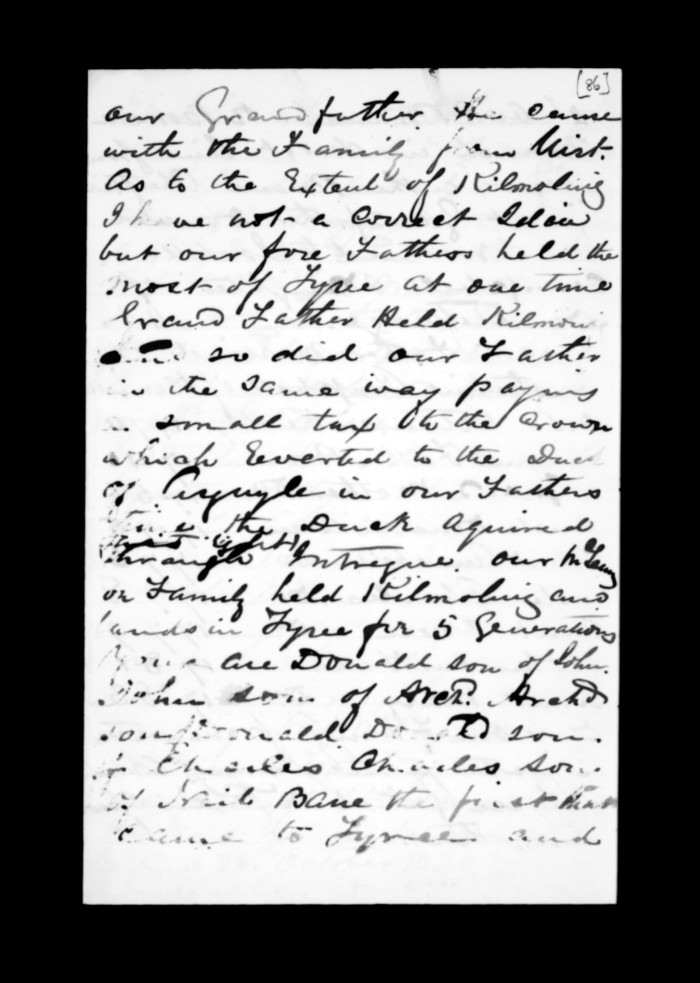 [86]
our Grandfather. He came
with the Family from Uist.
As to the Extent of Kilmoluig
I have not a Correct Idaie
but our fore Fathers held the
most of Tyree at one time
Grand Father Held Kilmoluig
and so did our Father
in the same way paying
a small tax to the Crown
which Everted to the Duck
of Argugle in our Fathers
time the Duck Aquired
through Intregue. our McLean
or Family held Kilmoluig and
lands in Tyree for 5 Generations
are Donald son of John.
John son of Archd. Archd
son of Donald. Donald son.
of Charles Charles son.
of Neil Bane the first that
Came to Tyree and